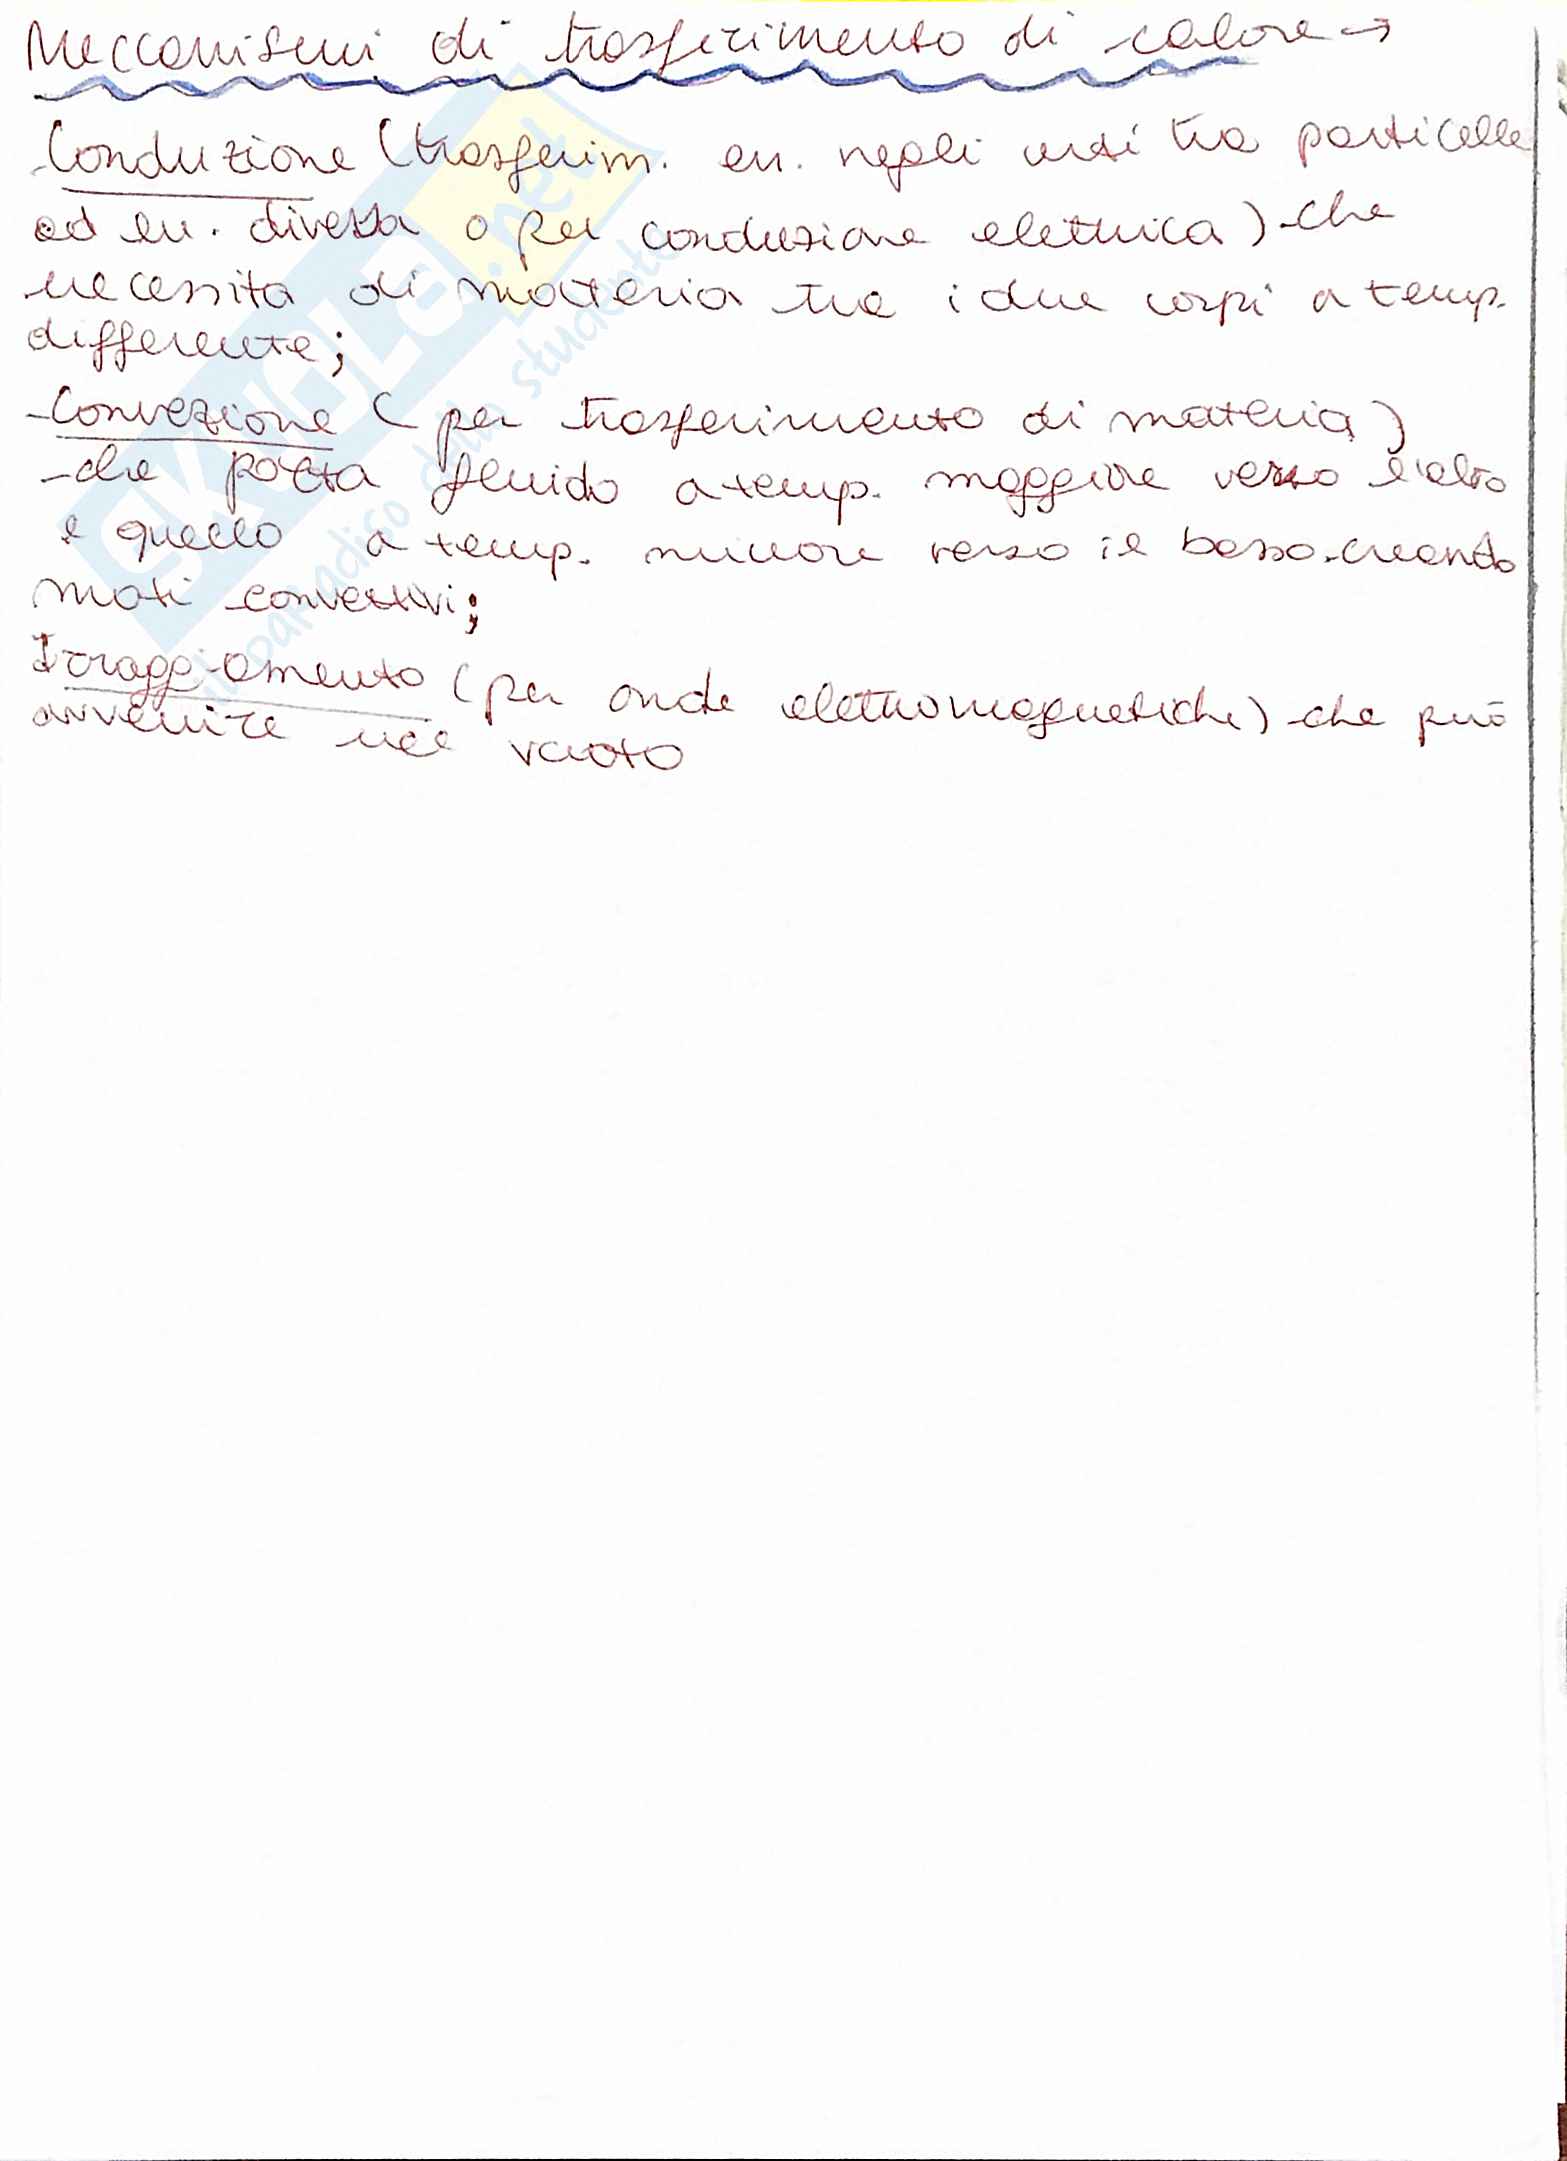 Meccanismi di trasferimento di calore →
-Conduzione (trasferim. en. negli urti tra particelle
ad en. diversa o per conduzione elettrica) che
necessita di materia tra i due corpi a temp.
differente;
-Convezione (per trasferimento di materia)
che porta fluido a temp. maggiore verso l'alto
e quello a temp. minore verso il basso creando
moti convettivi;
Irraggiamento (per onde elettromagnetiche) che può
avvenire nel vuoto
SKUOLA.net
il paradiso dello studente